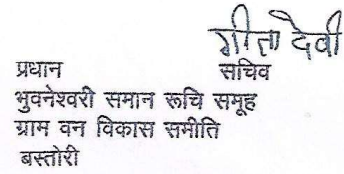 गीता देवी
प्रधान सचिव
भुवनेश्वरी समान रूचि समूह
ग्राम वन विकास समीति
बस्तोरी